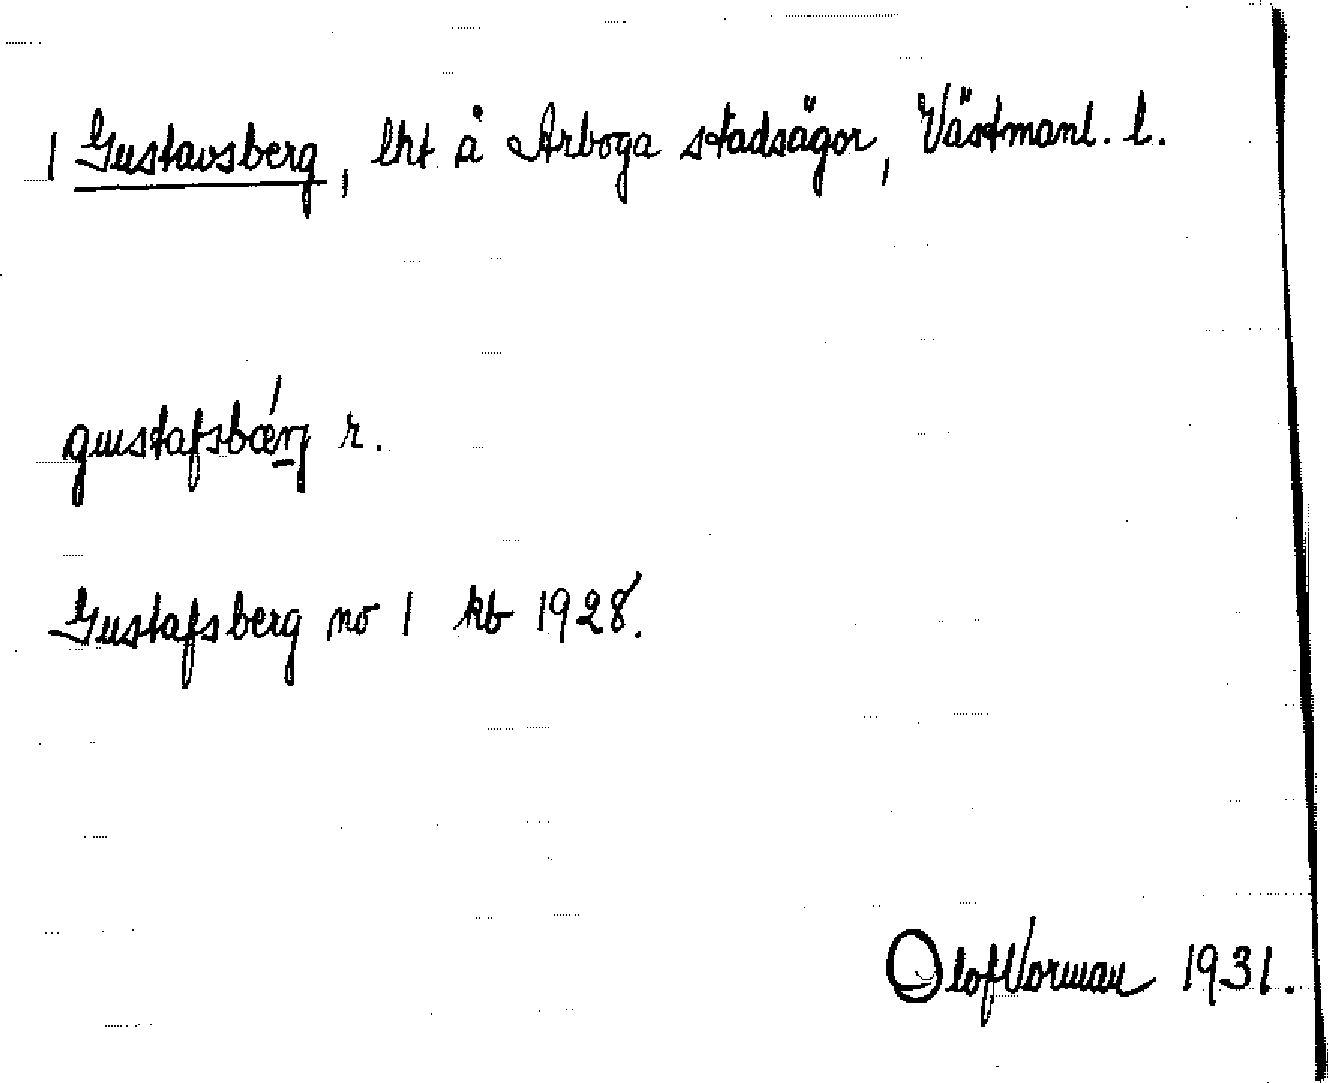 1 Gustavsberg, lht å Arboga stadsägor, Västmanl. l.
gustafsbærj r.
Gustafsberg no 1 kb 1928.
Olof Vorman 1931.